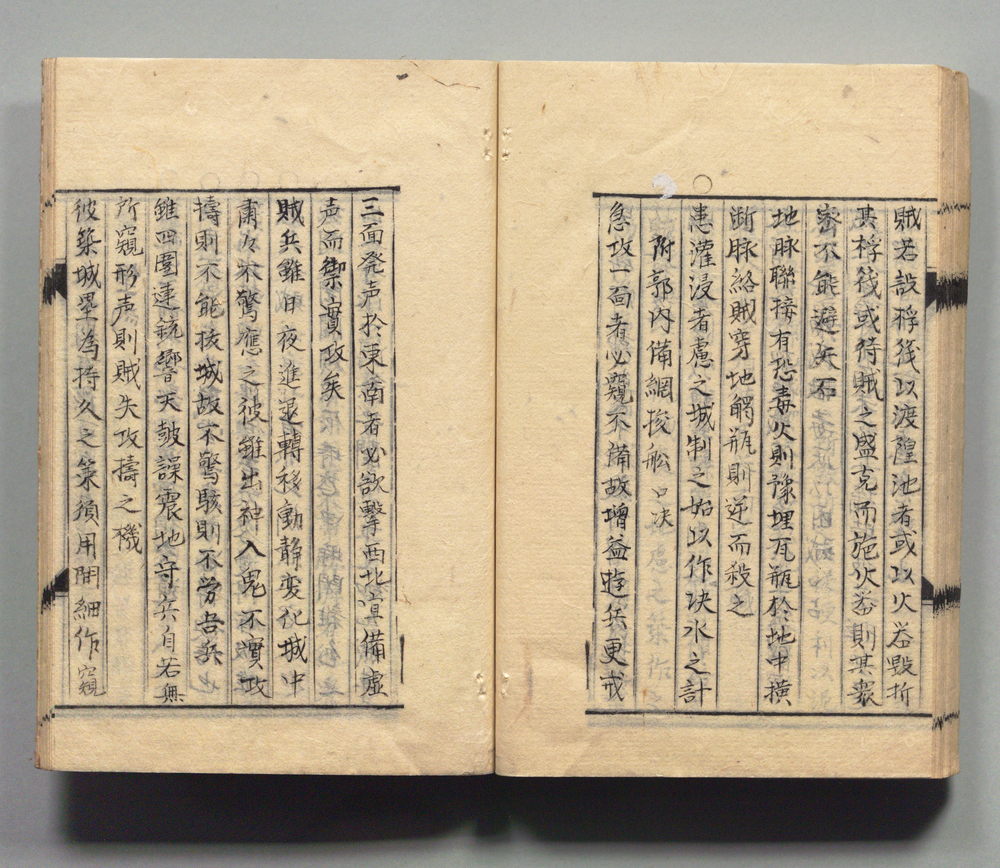 賊若設桴筏以渡隍池者或以火益毀折
其桴筏或待賊之盛克而施火益則其衆
密不能避矢石
地脉聯接有恐毒火則豫埋瓦瓶於地中橫
断脉絡賊穿地觸瓶則逆而殺之
患灌浸者慮之城制之始以作决水之計
附郭內備網梭舩口决
急攻一面者必窺不備故增益遊兵更戒
三面発声於東南者必欲擊西北宜備虛
声而禦實攻矣
賊兵雖日夜進退轉移動静変化城中
肅々不驚應之彼雖出神入鬼不實攻
擣則不能拔城故不驚駭則不労吾兵
雖四圍連銃響天皷譟震地守兵自若無
所窺形声則賊失攻擣之機
彼築城壘為持久之策須用間細作窺